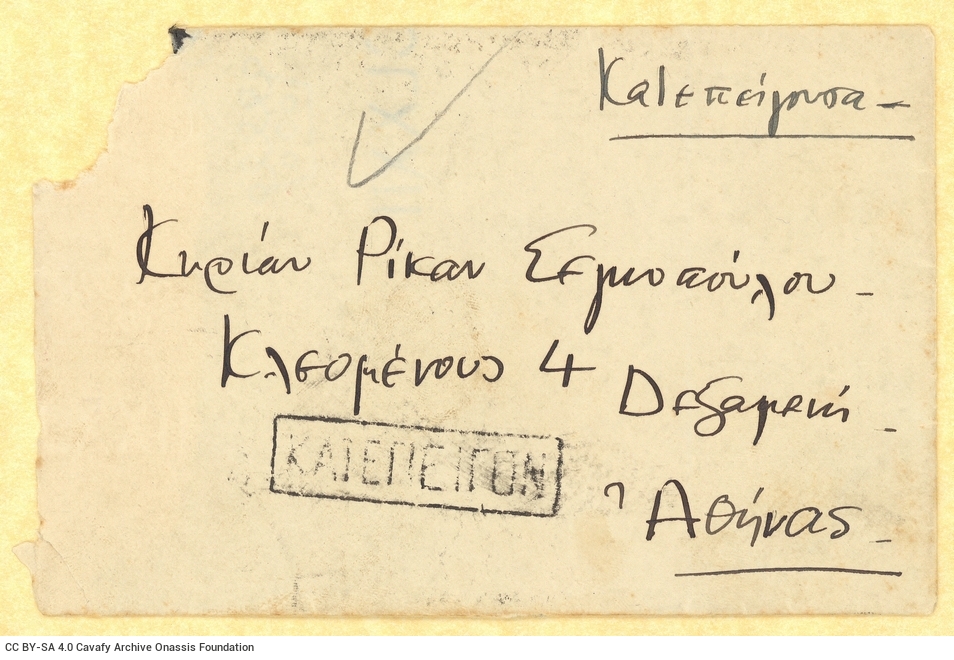 Κατεπείγουσα –
Κυρίαν Ρίκαν Σεγκοπούλου –
Κλεομένους 4
Δεξαμενή –
ΚΑΤΕΠΕΙΓΟΝ
Ἀθήνας –
CC BY-SA 4.0 Cavafy Archive Onassis Foundation